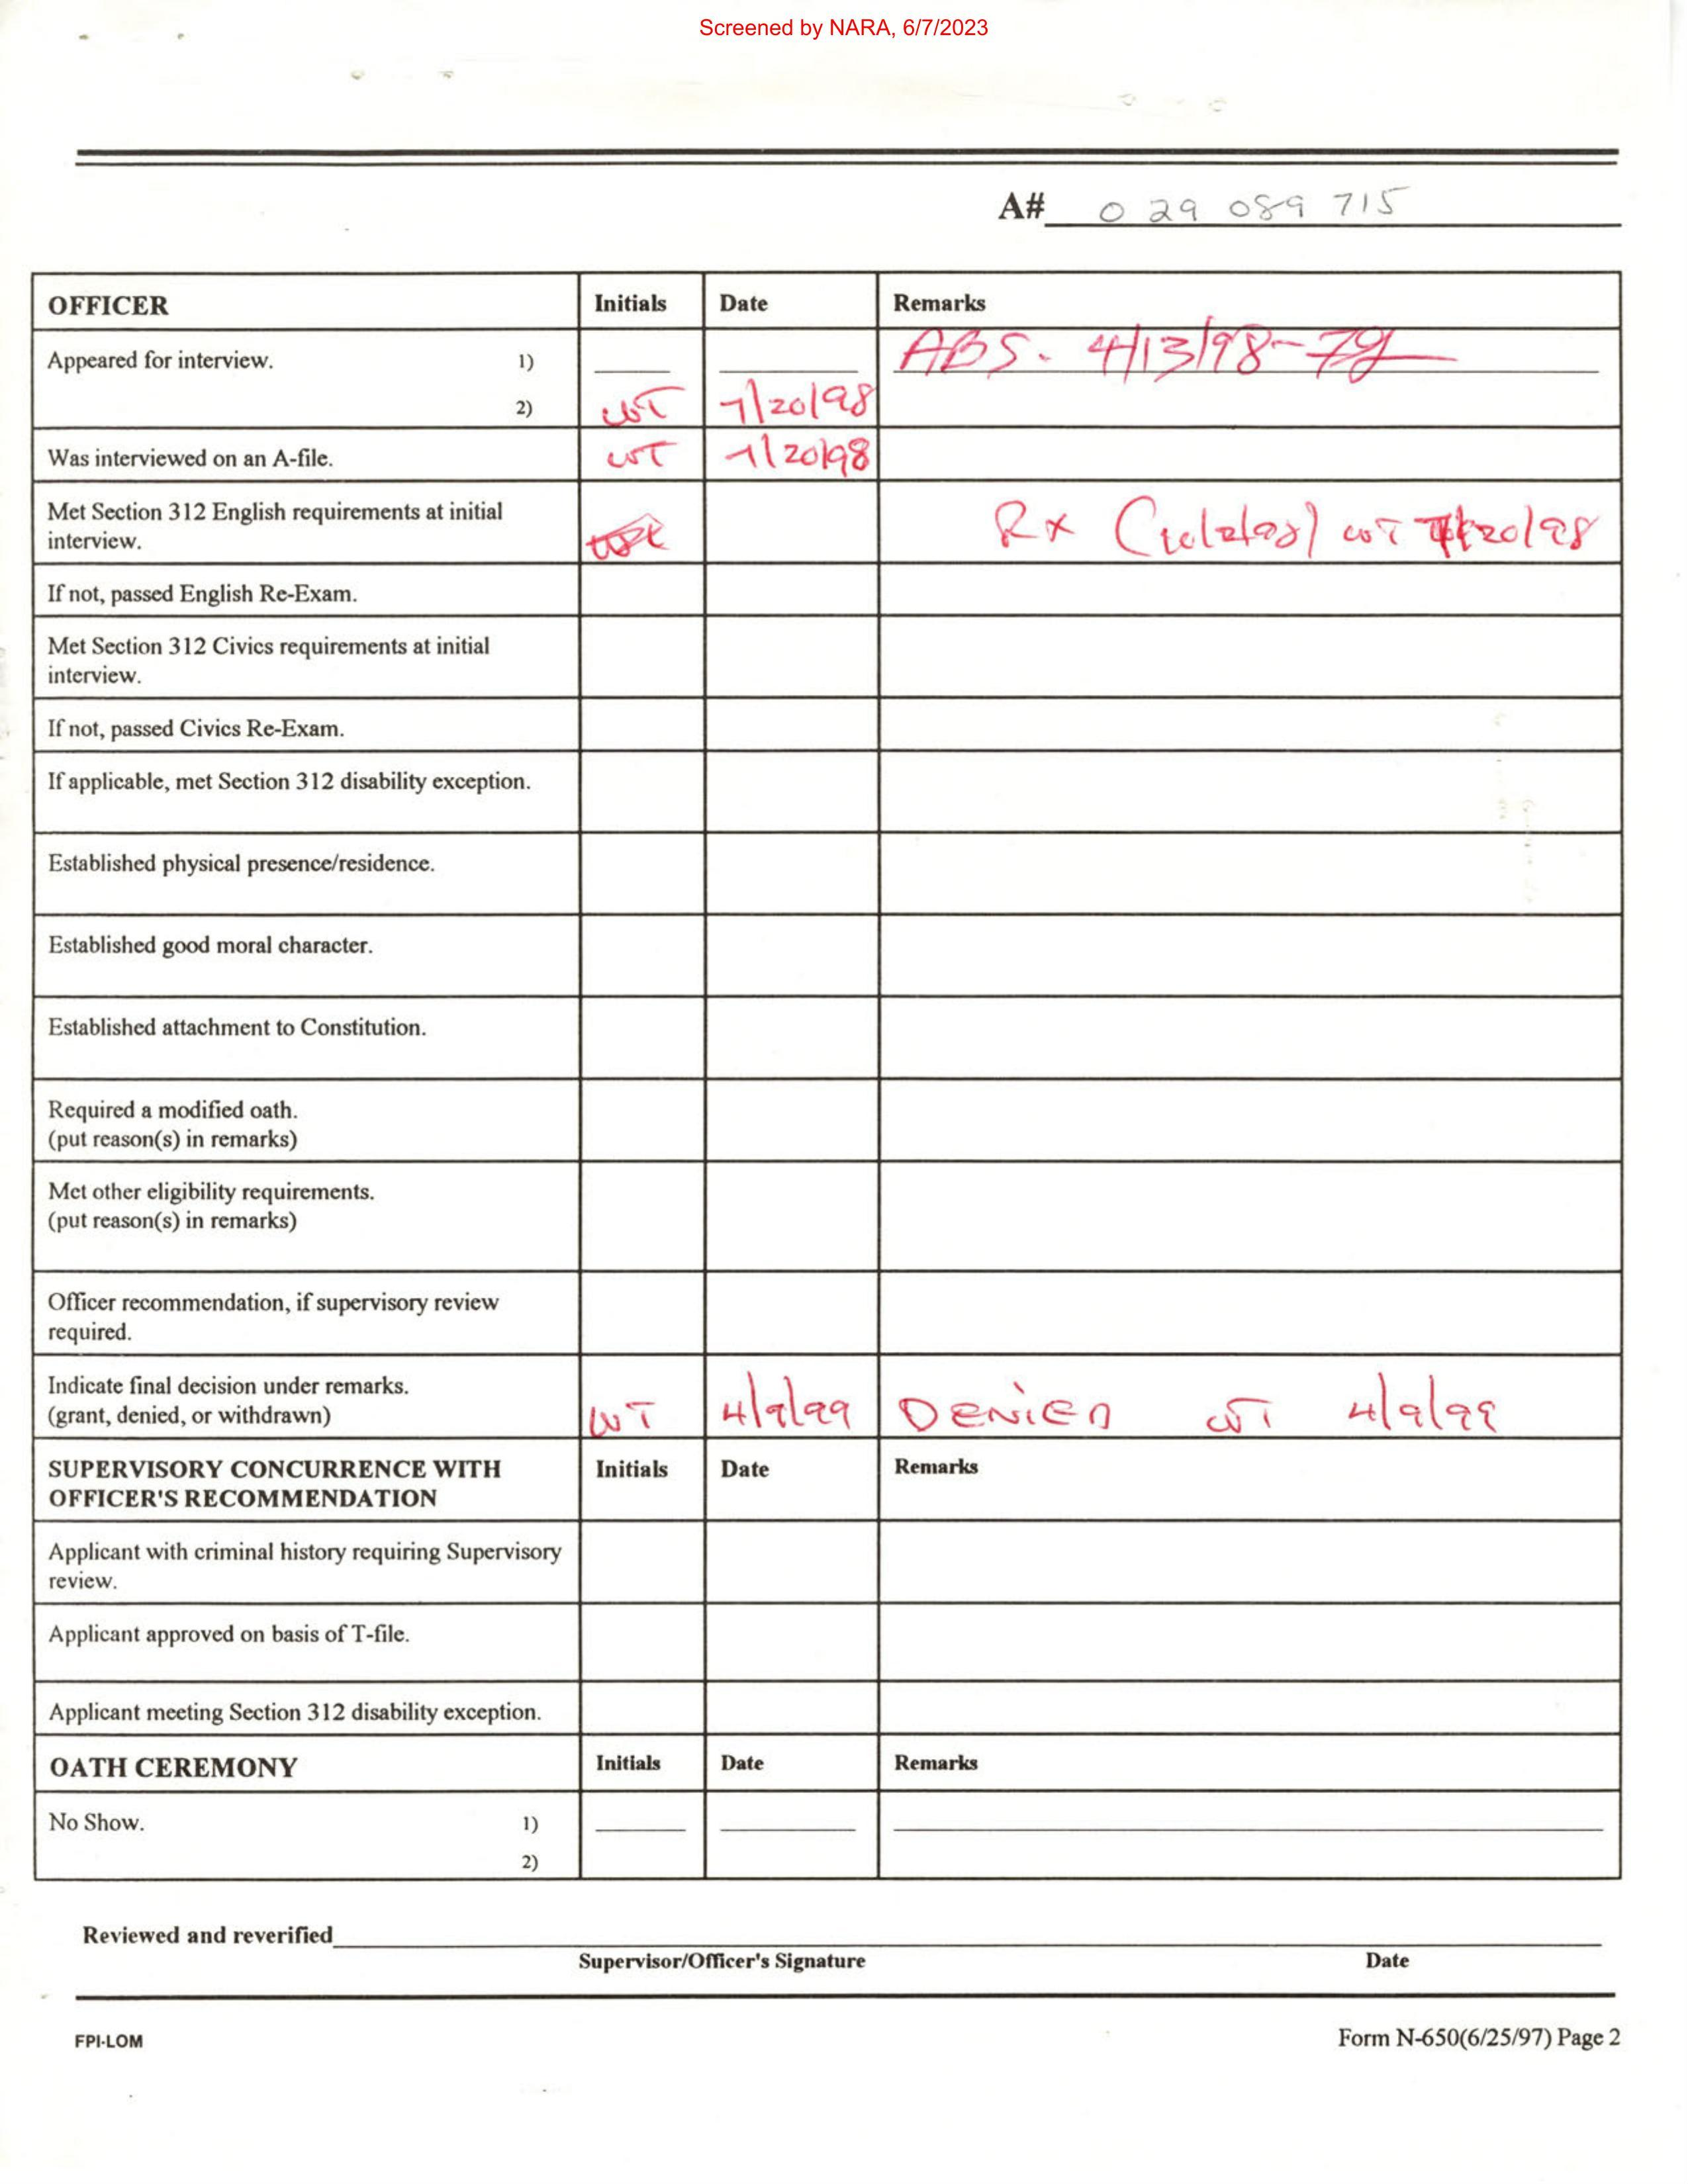 Screened by NARA, 6/7/2023
A# 0 29 089 715
OFFICER Initials Date Remarks
Appeared for interview. 1) ABS. 4/13/98-
2) WT 7/20/98
Was interviewed on an A-file. WT 7/20/98
Met Section 312 English requirements at initial
interview. Rx (10/2/98) WT 7/20/98
If not, passed English Re-Exam.
Met Section 312 Civics requirements at initial
interview.
If not, passed Civics Re-Exam.
If applicable, met Section 312 disability exception.
Established physical presence/residence.
Established good moral character.
Established attachment to Constitution.
Required a modified oath.
(put reason(s) in remarks)
Met other eligibility requirements.
(put reason(s) in remarks)
Officer recommendation, if supervisory review
required.
Indicate final decision under remarks.
(grant, denied, or withdrawn) WT 4/9/99 DENIED WT 4/9/99
SUPERVISORY CONCURRENCE WITH Initials Date Remarks
OFFICER'S RECOMMENDATION
Applicant with criminal history requiring Supervisory
review.
Applicant approved on basis of T-file.
Applicant meeting Section 312 disability exception.
OATH CEREMONY Initials Date Remarks
No Show. 1)
2)
Reviewed and reverified
Supervisor/Officer's Signature Date
FPI-LOM Form N-650(6/25/97) Page 2